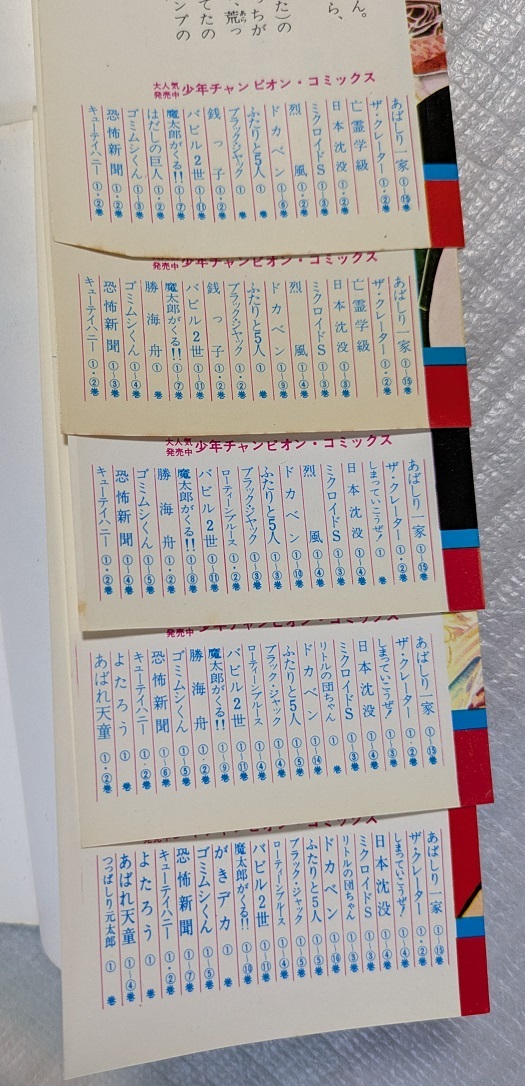 ん。
ら、
た）の
っちが
、荒っ
てたの
ンプの
大人気
発売中
少年チャンピオン・コミックス
あばしり一家 ①〜⑮巻
ザ・クレーター ①・②巻
亡霊学級
日本沈没 ①・②巻
ミクロイドS ①〜③巻
烈風 ①・②巻
ドカベン ①〜⑥巻
ふたりと5人 ① 巻
ブラックジャック ① 巻
銭っ子 ①・②巻
バビル2世 ①〜⑩巻
魔太郎がくる!! ①〜⑦巻
はだしの巨人 ①・②巻
ゴミムシくん ①〜③巻
恐怖新聞 ①・②巻
キューティハニー ①・②巻
発売中
少年チャンピオン・コミックス
あばしり一家 ①〜⑮巻
ザ・クレーター ①・②巻
亡霊学級
日本沈没 ①〜③巻
ミクロイドS ①〜③巻
烈風 ①〜④巻
ドカベン ①〜⑨巻
ふたりと5人 ① 巻
ブラックジャック ①・②巻
銭っ子 ①・②巻
バビル2世 ①〜⑪巻
魔太郎がくる!! ①〜⑦巻
勝海舟 ① 巻
ゴミムシくん ①〜④巻
恐怖新聞 ①〜③巻
キューティハニー ①・②巻
大人気
発売中
少年チャンピオン・コミックス
あばしり一家 ①〜⑮巻
ザ・クレーター ①・②巻
しまっていこうぜ! ① 巻
日本沈没 ①〜④巻
ミクロイドS ①〜③巻
烈風 ①〜④巻
ドカベン ①〜⑩巻
ふたりと5人 ①〜③巻
ブラックジャック ①〜③巻
ローティーンブルース ①・②巻
バビル2世 ①〜⑪巻
魔太郎がくる!! ①〜⑧巻
勝海舟 ①・②巻
ゴミムシくん ①〜⑤巻
恐怖新聞 ①〜④巻
キューティハニー ①・②巻
発売中
少年チャンピオン・コミックス
あばしり一家 ①〜⑮巻
ザ・クレーター ①・②巻
しまっていこうぜ! ①〜③巻
日本沈没 ①〜④巻
ミクロイドS ①〜③巻
リトルの団ちゃん ① 巻
ドカベン ①〜⑭巻
ふたりと5人 ①〜⑤巻
ブラック・ジャック ①〜④巻
ローティーンブルース ①〜④巻
バビル2世 ①〜⑪巻
魔太郎がくる!! ①〜⑨巻
勝海舟 ①・②巻
ゴミムシくん ①〜⑤巻
恐怖新聞 ①〜⑥巻
キューティハニー ①・②巻
よたろう ① 巻
あばれ天童 ①・②巻
あばしり一家 ①〜⑮巻
ザ・クレーター ①・②巻
しまっていこうぜ! ①〜④巻
日本沈没 ①〜④巻
ミクロイドS ①〜③巻
リトルの団ちゃん ①〜③巻
ドカベン ①〜⑯巻
ふたりと5人 ①〜⑤巻
ブラック・ジャック ①〜⑤巻
ローティーンブルース ①〜④巻
バビル2世 ①〜⑪巻
魔太郎がくる!! ①〜⑩巻
がきデカ ① 巻
ゴミムシくん ①〜⑤巻
恐怖新聞 ①〜⑦巻
キューティハニー ①・②巻
よたろう ① 巻
あばれ天童 ①〜④巻
つっぱしり元太郎 ① 巻